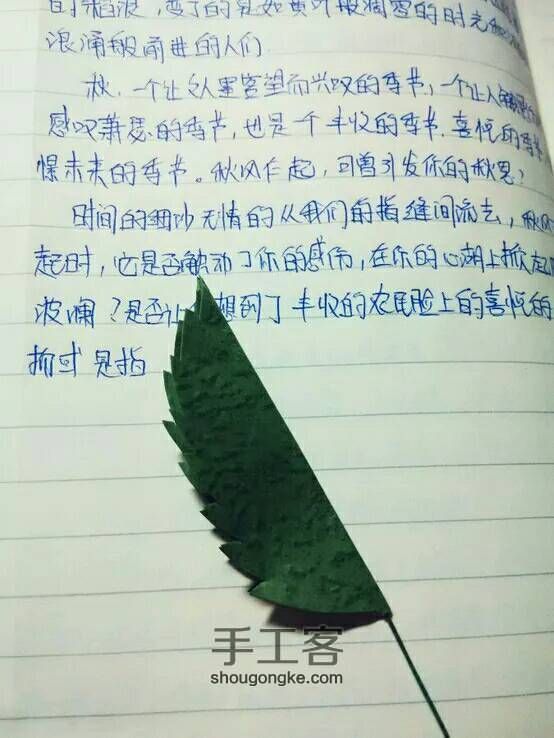 的稻浪，变了的是如黄叶般凋零的时光
浪涌般前进的人们.
秋.一个让文人墨客望而兴叹的季节，一个让人
感叹萧瑟的季节，也是个丰收的季节.喜悦的季节
憬未来的季节。秋风乍起，可曾引发你的秋思？
时间的细沙无情的从我们的指缝间流去，秋风
起时，它是否触动了你的感伤，在你的心湖上掀起
波澜？是否让想到了丰收的农民脸上的喜悦的
抑或是指
手工客
shougongke.com